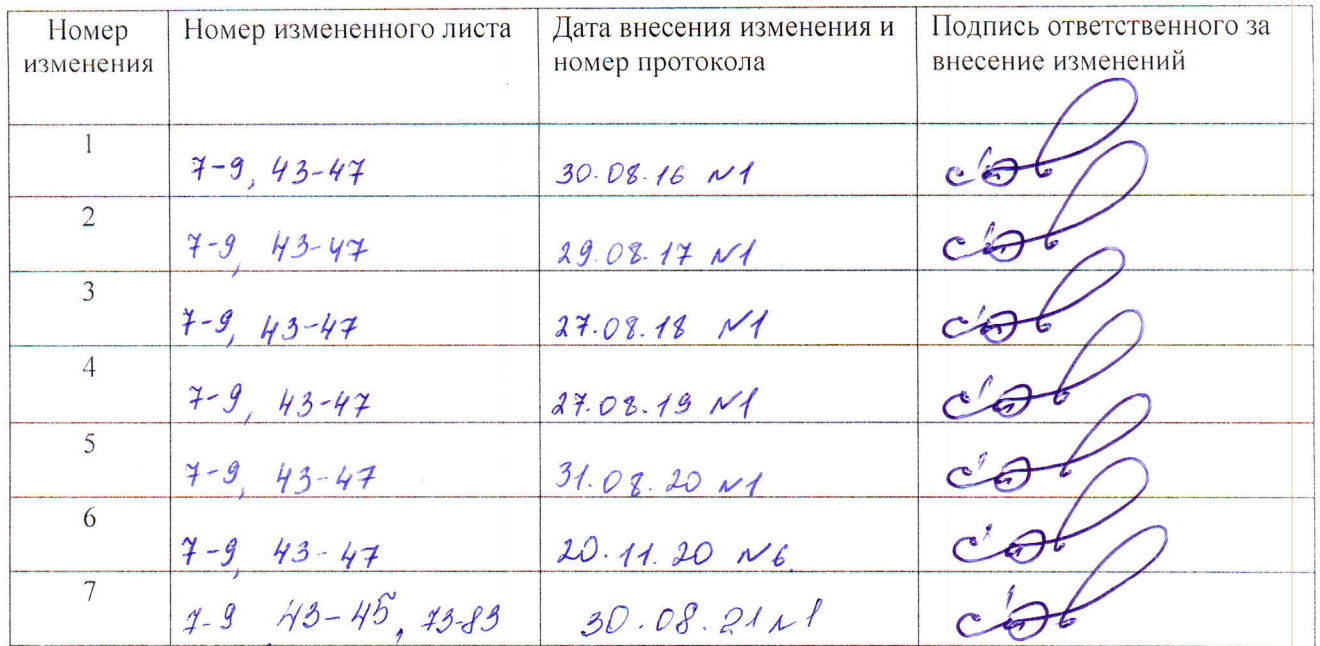 Номер изменения | Номер измененного листа | Дата внесения изменения и номер протокола | Подпись ответственного за внесение изменений
1 | 7-9, 43-47 | 30.08.16 №1
2 | 7-9, 43-47 | 29.08.17 №1
3 | 7-9, 43-47 | 27.08.18 №1
4 | 7-9, 43-47 | 27.08.19 №1
5 | 7-9, 43-47 | 31.08.20 №1
6 | 7-9, 43-47 | 20.11.20 №6
7 | 7-9, 43-45, 73-83 | 30.08.21 №1